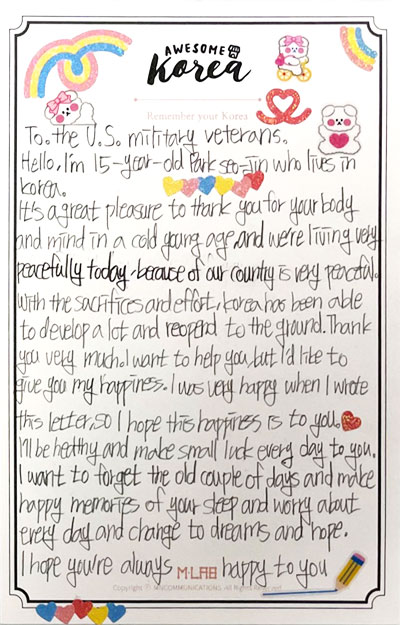 AWESOME
Korea
Remember your Korea
To. the U.S. military veterans.
Hello, I'm 15-year-old Park seo-jin who lives in
korea.
It's a great pleasure to thank you for your body
and mind in a cold young age, and we're living very
peacefully today, because of our country is very peaceful.
With the sacrifices and effort, korea has been able
to develop a lot and reopend to the ground. Thank
you very much. I want to help you, but I'd like to
give you my happiness. I was very happy when I wrote
this letter, so I hope this happiness is to you.
I'll be healthy and make small luck every day to you.
I want to forget the old couple of days and make
happy memories of your sleep and worry about
every day and change to dreams and hope.
I hope you're always M·LAB happy to you
Copyright © COMMUNICATIONS. All Rights